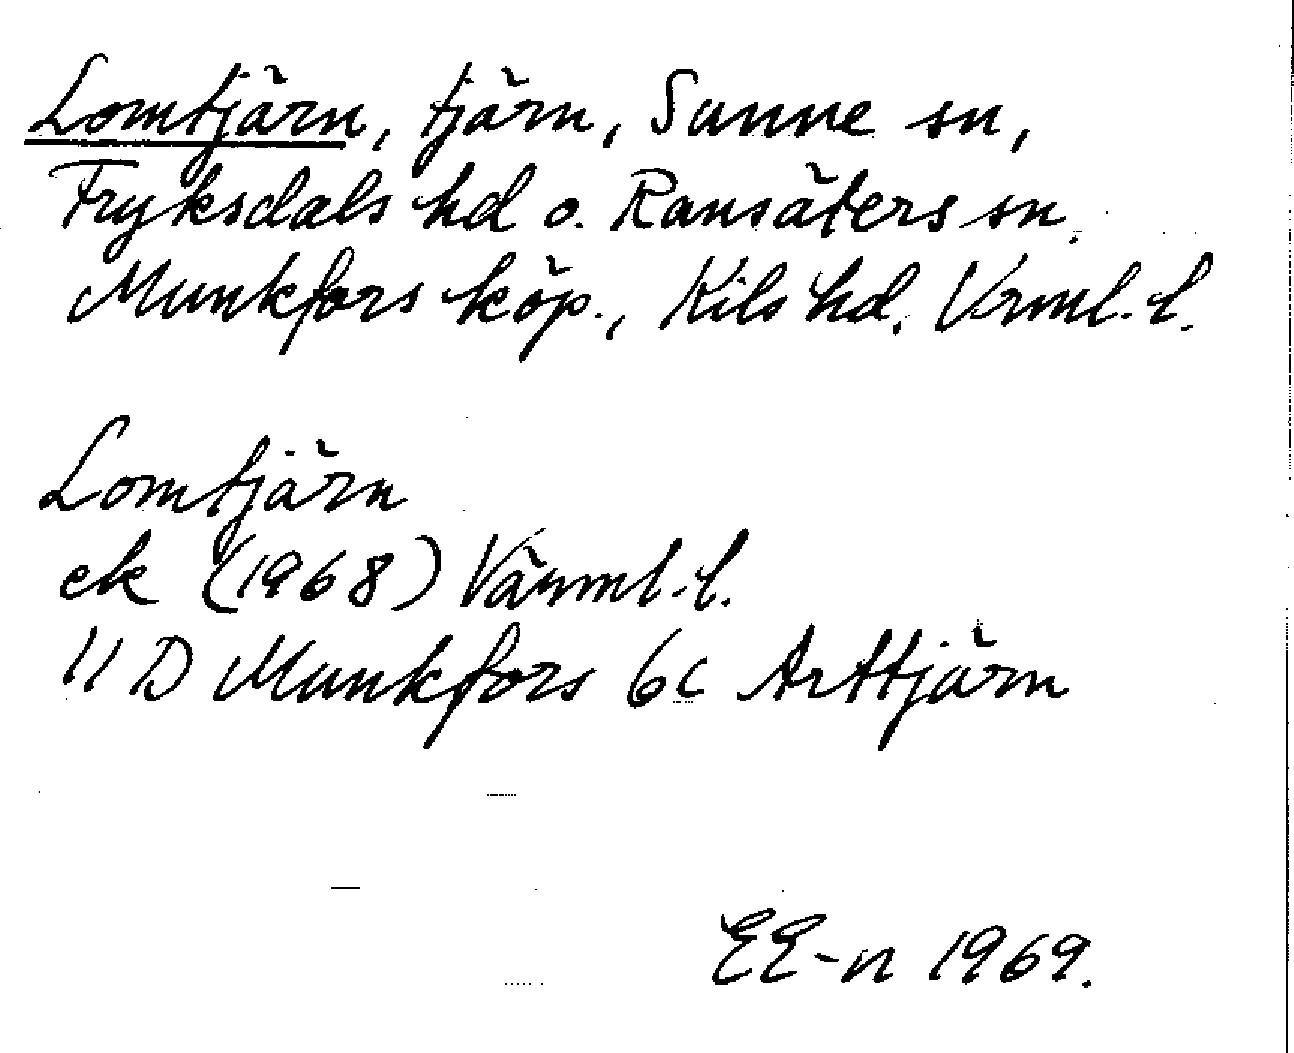 Lomtjärn, tjärn, Sunne sn,
Fryksdals hd o. Ransäters sn.
Munkfors köp., Kils hd. Vrml. l.
Lomtjärn
ek (1968) Värml. l.
11 D Munkfors 6c Arttjärn
EE-n 1969.